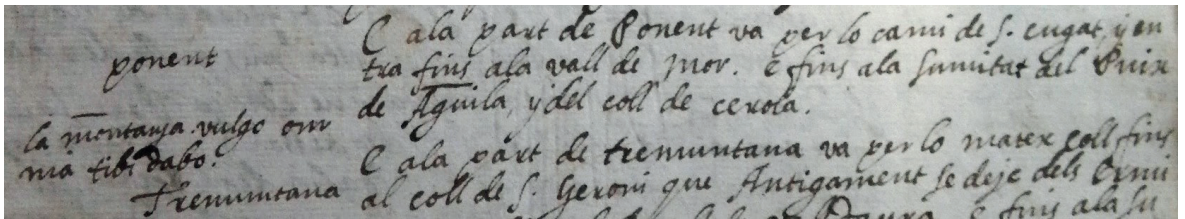 ponent
la mõntanya vulgo om
nia tibi dabo.
Tremuntana
E ala part de Ponent va per lo cami de S. cugat, y en
tra fins ala vall de Mor. E fins ala sumitat del Puix
de Aguila, y del coll de cerola.
E ala part de tremuntana va per lo matex coll fins
al coll de S. Geroni que Antigament se deje dels Ermi
E fins ala su